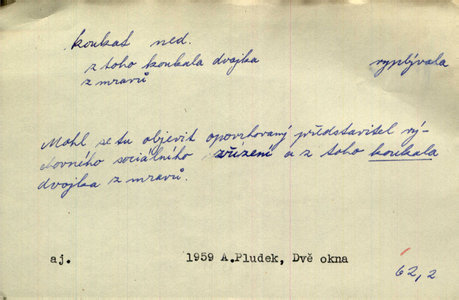 koukat ned.
z toho koukala dvojka vyplývala
z mravů
Mohl se tu objevit opovrhovaný představitel vý-
dovného sociálního zřízení a z toho koukala
dvojka z mravů.
aj. 1959 A.Pludek, Dvě okna
62,2